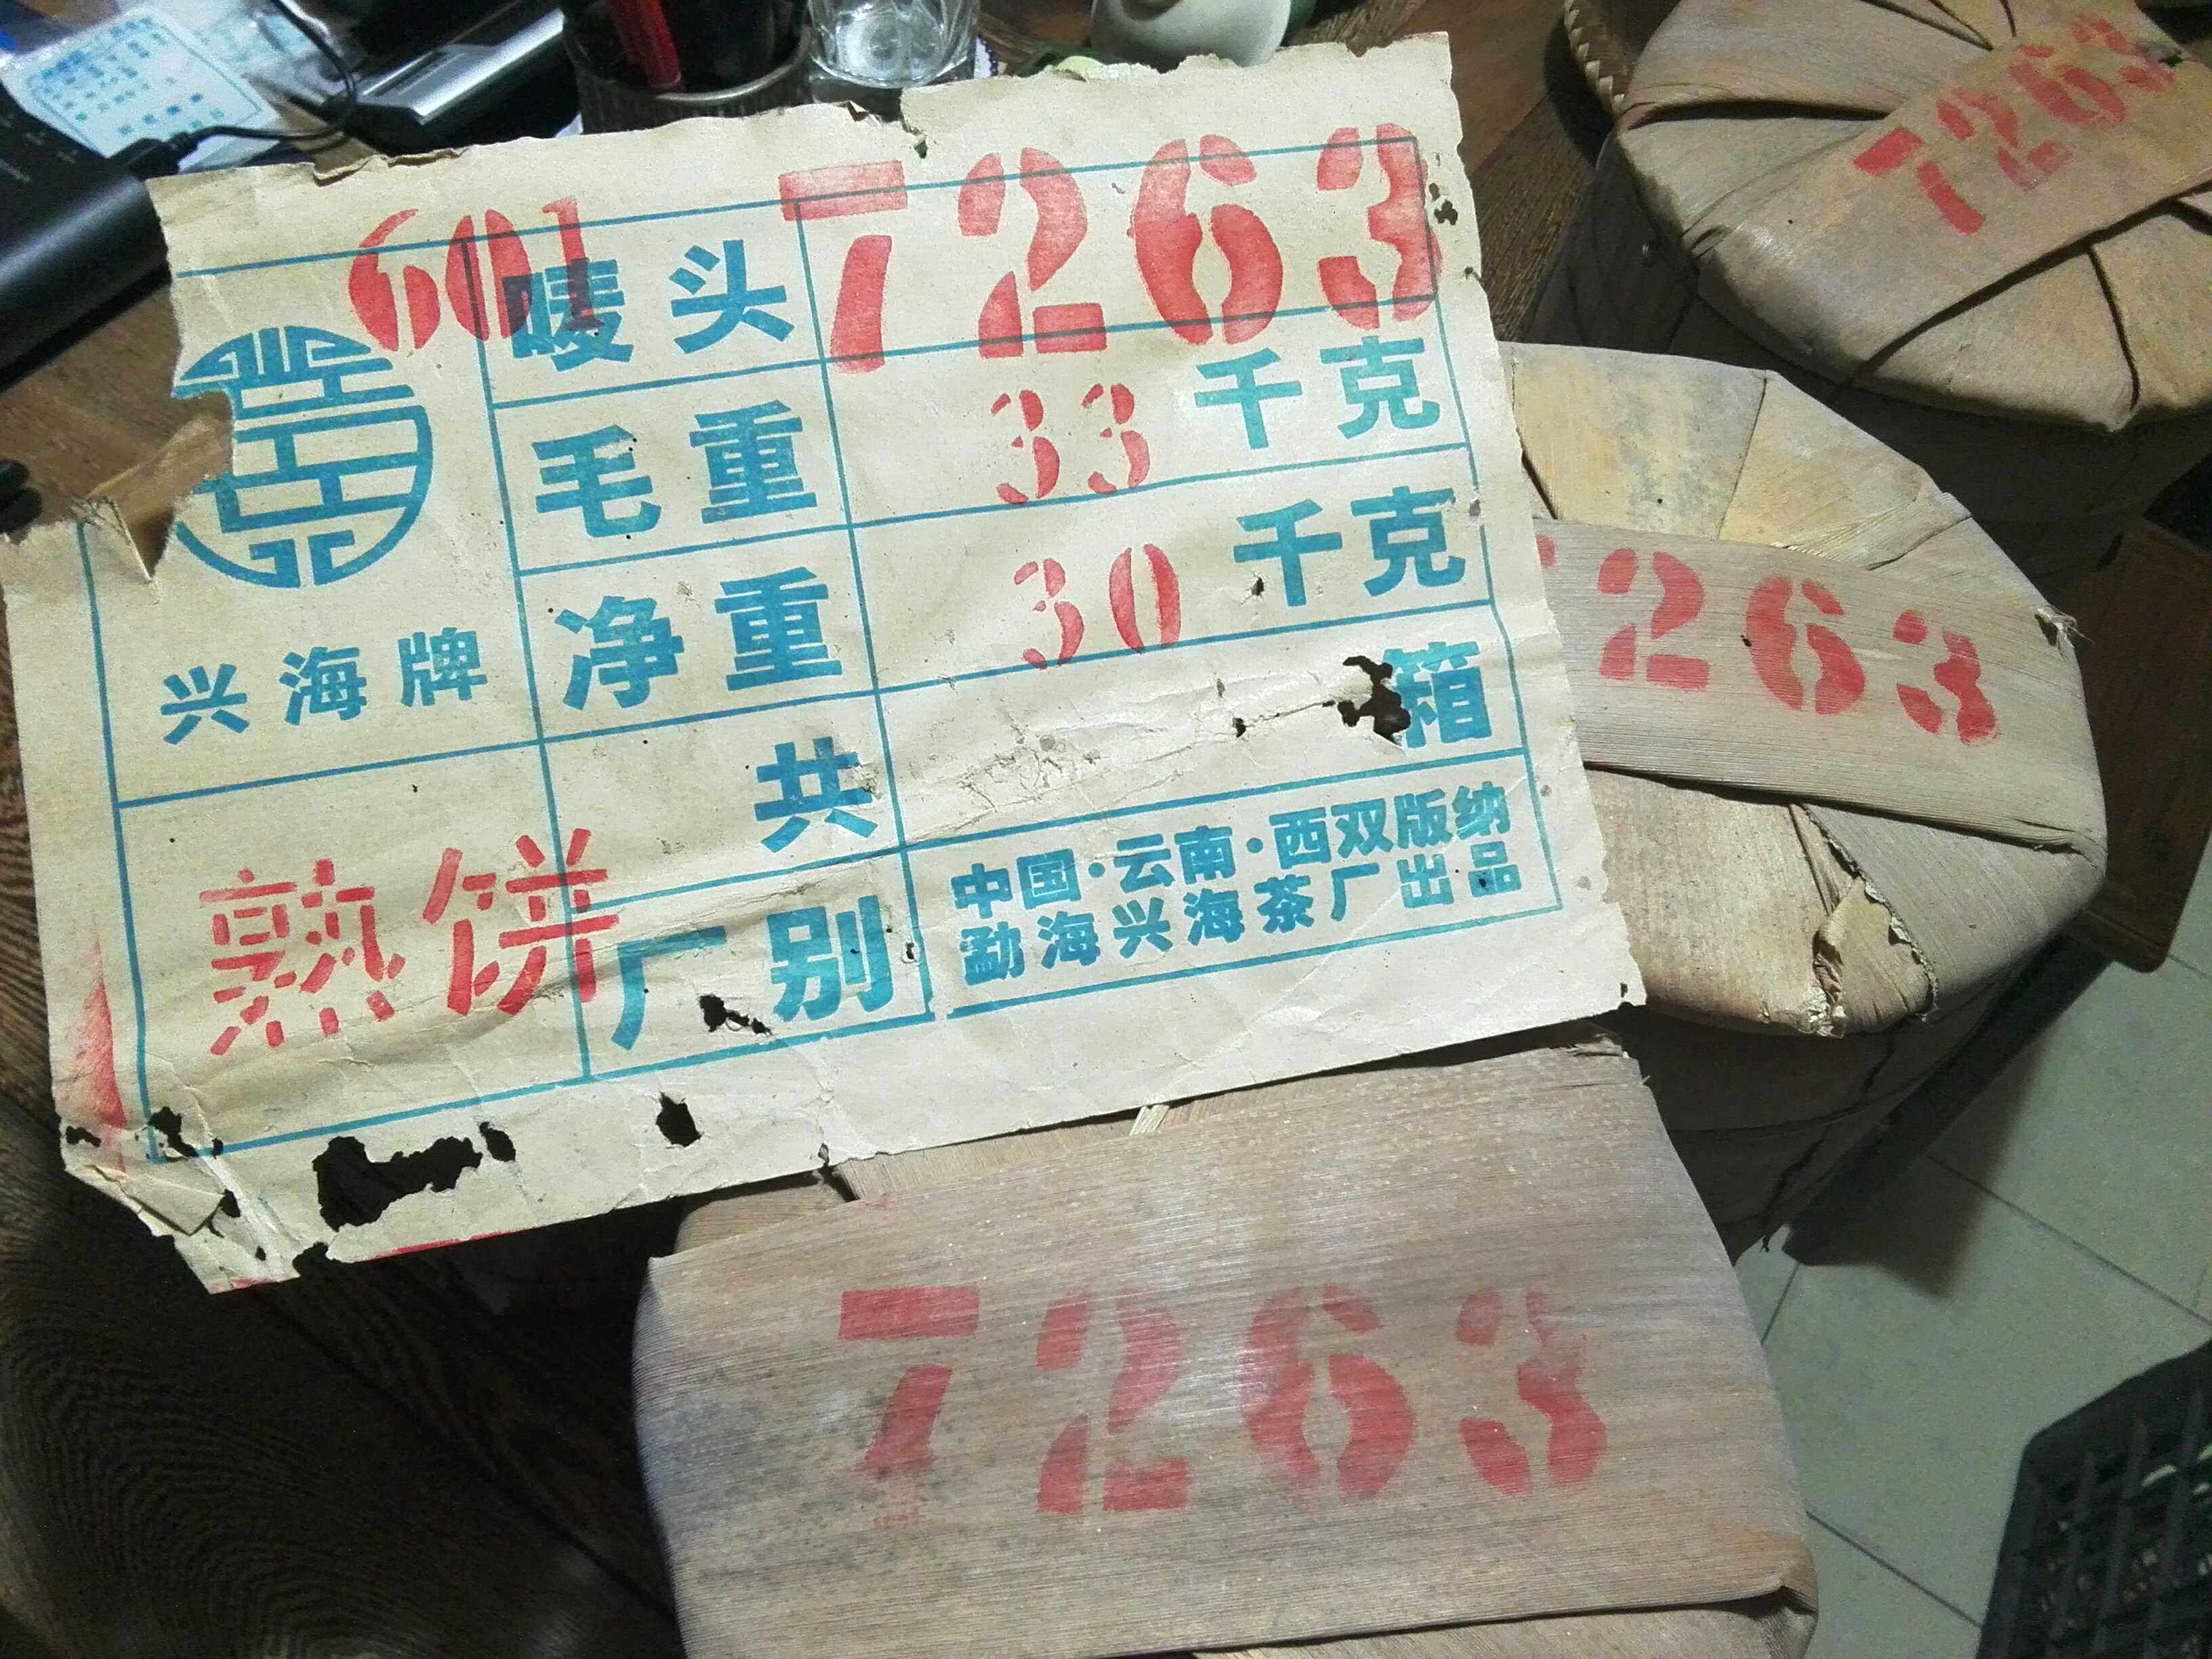 601
唛头 7263
毛重 33 千克
净重 30 千克
兴海牌
共 箱
熟饼
厂别
中国·云南·西双版纳
勐海兴海茶厂出品
7263
7263
7263